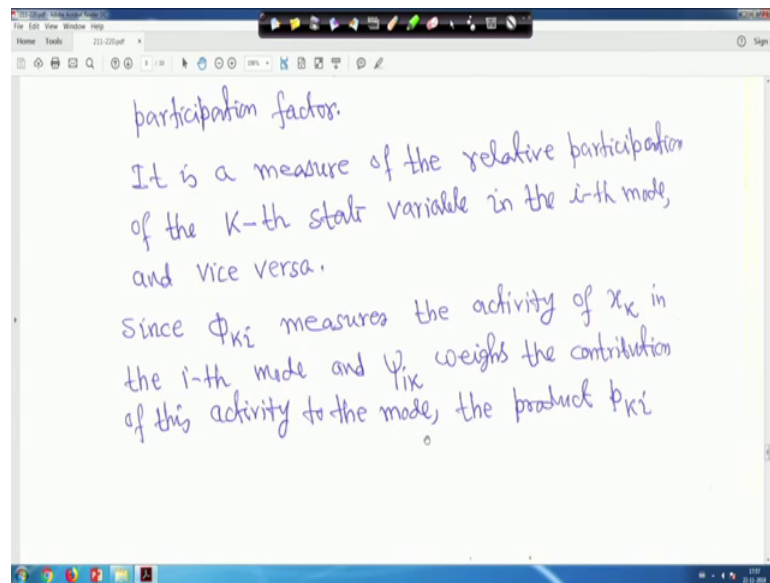 211-220.pdf - Adobe Acrobat Reader DC
File Edit View Window Help
Home Tools 211-220.pdf × Sign
participation factor.
It is a measure of the relative participation
of the K-th state variable in the i-th mode,
and vice versa.
Since ϕKi measures the activity of xK in
the i-th mode and ψiK weighs the contribution
of this activity to the mode, the product pKi
17:57